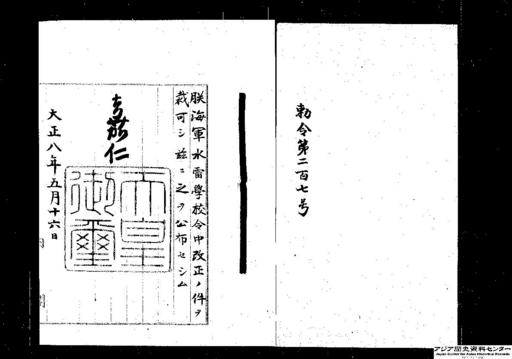 勅令第二百七号
朕海軍水雷學校令中改正ノ件ヲ
裁可シ茲ニ之ヲ公布セシム
嘉仁
天皇御璽
大正八年五月十六日
アジア歴史資料センター
Japan Center for Asian Historical Records